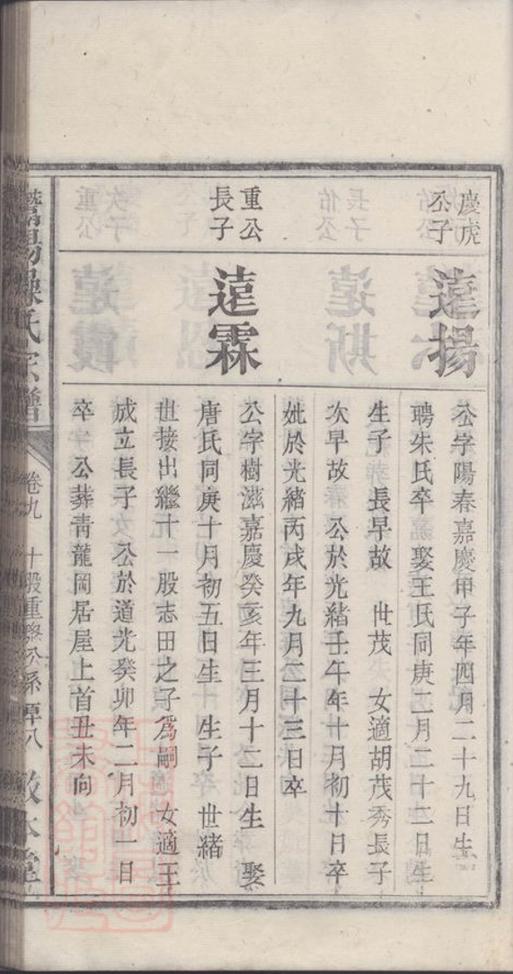 慶虎
公子
達揚
公字陽春嘉慶甲子年四月二十九日生
聘朱氏卒 娶王氏同庚二月二十二日生
生子 長早故 世茂 女適胡茂秀長子
次早故 公於光緒壬午年十月初十日卒
妣於光緒丙戌年九月二十三日卒
重公
長子
達霖
公字樹滋嘉慶癸亥年三月十二日生 娶
唐氏同庚十月初五日生 生子 世緒
世接出繼十一股志田之子爲嗣 女適王
成立長子 公於道光癸卯年二月初一日
卒 公葬青龍岡居屋上首丑未向
氏宗譜
卷九 十股重
敬本堂